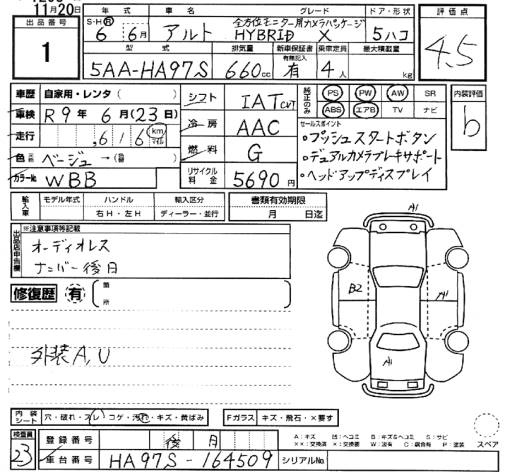 11月20日
出品番号 1
年式 車名 グレード ドア・形状 評価点
S・H・R 6 6月 アルト 全方位モニター用カメラパッケージ HYBRID X 5 ハコ 4.5
型式 排気量 新車保証書 乗車定員 最大積載量
有無記入
5AA-HA97S 660cc 有 4人 kg
車歴 自家用・レンタ( ) シフト IAT CVT 純正のみ PS PW AW SR 内装評価
車検 R9年6月(23)日 ABS エアB TV ナビ b
走行 ,616 km マイル 冷房 AAC セールスポイント
・プッシュスタートボタン
色 ベージュ→( ) 燃料 G ・デュアルカメラブレーキサポート
カラーNo. WBB リサイクル料金 5690円 ・ヘッドアップディスプレイ
輸入車 モデル年式 ハンドル 輸入区分 書類有効期限
右H・左H ディーラー・並行 月 日迄
出品店申告欄 ※注意事項等記載
オーディオレス
ナンバー後日
修復歴 有 箇所
外装A,U
A1
B2 A1
A1
内装シート 穴・破れ・スレ・コゲ・汚れ・キズ・黄ばみ Fガラス キズ・飛石・×要す
検査員 23 登録番号 後月
車台番号 HA97S-164509 シリアルNo.
A：キズ U：ヘコミ B：キズ&ヘコミ S：サビ
××：交換済 ×：交換要 W：波有 C：腐食有 P：塗装 スペア